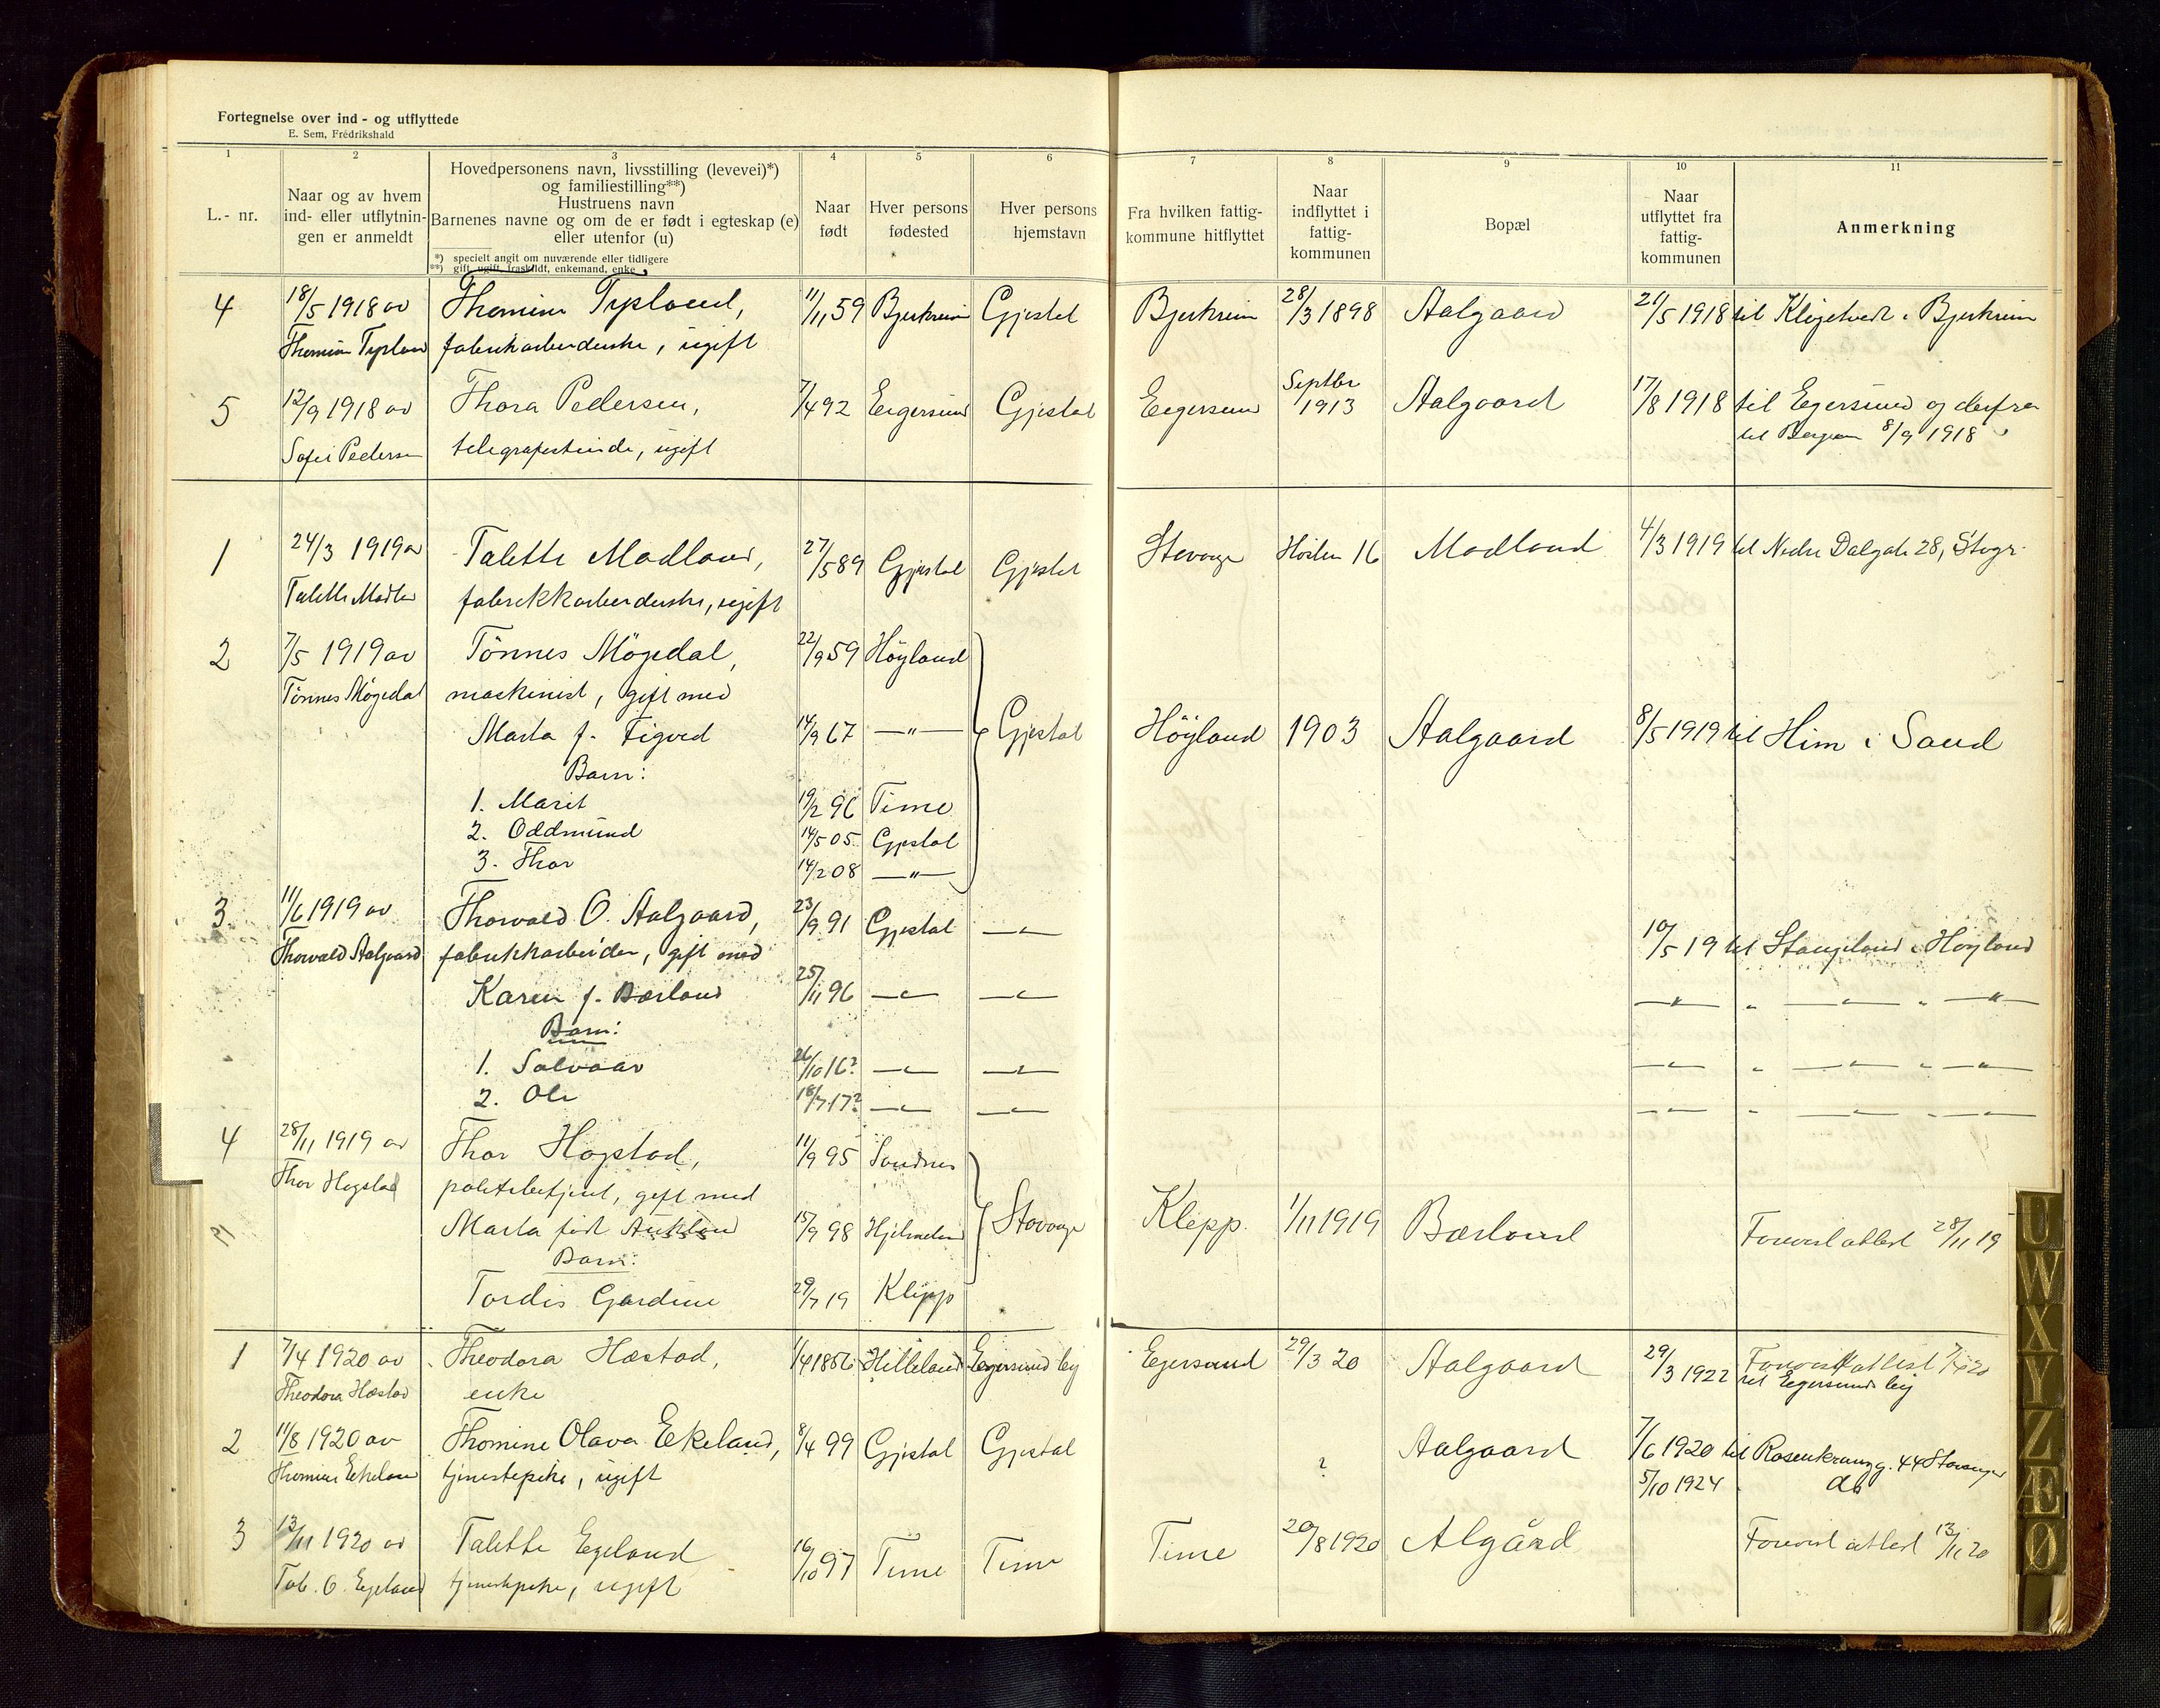 Fortegnelse over ind- og utflyttede
E. Sem, Fredrikshald
1 2 3 4 5 6 7 8 9 10 11
L.- nr.
Naar og av hvem
ind- eller utflytnin-
gen er anmeldt
Hovedpersonens navn, livsstilling (levevei)*)
og familiestilling**)
Hustruens navn
Barnenes navne og om de er født i egteskap (e)
eller utenfor (u)
*) specielt angit om nuværende eller tidligere
**) gift, ugift, fraskildt, enkemand, enke
Naar
født
Hver persons
fødested
Hver persons
hjemstavn
Fra hvilken fattig-
kommune hitflyttet
Naar
indflyttet i
fattig-
kommunen
Bopæl
Naar
utflyttet fra
fattig-
kommunen
Anmerkning
4 18/5 1918 av Thomine Tysland, 11/11 59 Bjerkreim Gjestal Bjerkreim 28/3 1898 Aalgaard 21/5 1918 til i Bjerkreim
fabrikarbeiderske, ugift
5 12/9 1918 av Thora Pedersen, 7/4 92 Egersund Gjestal Egersund Septbr 1913 Aalgaard 17/8 1918 til Egersund og derfra
Sofie Pedersen telegrafistinde, ugift til Bergen 8/9 1918
1 24/3 1919 av Talette Madland, 27/5 89 Gjestal Gjestal Stavanger Høsten 16 Madland 4/3 1919 til Nedre Dalgate 28, Stvgr.
Talette Madla fabrikkarbeiderske, ugift
2 7/5 1919 av Tönnes Mögedal, 22/9 59 Höyland
Tönnes Mögedal maskinist, gift med
Marta f. Figved 14/9 67 —"— Gjestal Höyland 1903 Aalgaard 8/5 1919 til Him i Sand
Barn:
1. Marit 19/2 96 Time
2. Oddmund 14/5 05 Gjestal
3. Thor 14/2 08 —"—
3. 11/6 1919 av Thorvald O. Aalgaard, 23/9 91 Gjestal —"— 10/5 19 til Stangeland i Høyland
Thorvald Aalgaard fabrikkarbeider, gift med
Karen f. Bærland 25/11 96 —"— —"— —"— " —"— " —"—
Barn:
1. Salvaar 26/10 16? —"— —"— —"— " —"— " —"—
2. Ole 18/7 17? —"— —"— —"— " —"— " —"—
4 28/11 1919 av Thor Hogstad, 11/9 95 Sandnes
Thor Hogstad politibetjent, gift med
Marta født Auklan 15/9 98 Hjelmeland Stavanger Klepp. 1/11 1919 Bærland Forevist attest 28/11 19
Barn:
Tordis Gardine 29/7 19 Klepp
1 7/4 1920 av Theodora Hæstad, 1/4 1856 Hetland Egersund by Egersund 29/3 20 Aalgaard 29/3 1922 Forevist attest 7/4 20
Theodora Hæstad enke til Egersund by
2 11/8 1920 av Thomine Olava Ekeland, 8/4 99 Gjestal Gjestal ? Aalgaard 7/6 1920 til Rosenkranzg. 44 Stavanger
Thomine Ekeland tjenestepike, ugift 5/10 1924 do
3 13/11 1920 av Talette Egeland 16/10 97 Time Time Time 20/8 1920 Algård Forevist attest 13/11 20
Tal. O. Egeland tjenestepike, ugift
U
W
X
Y
Z
Æ
Ø